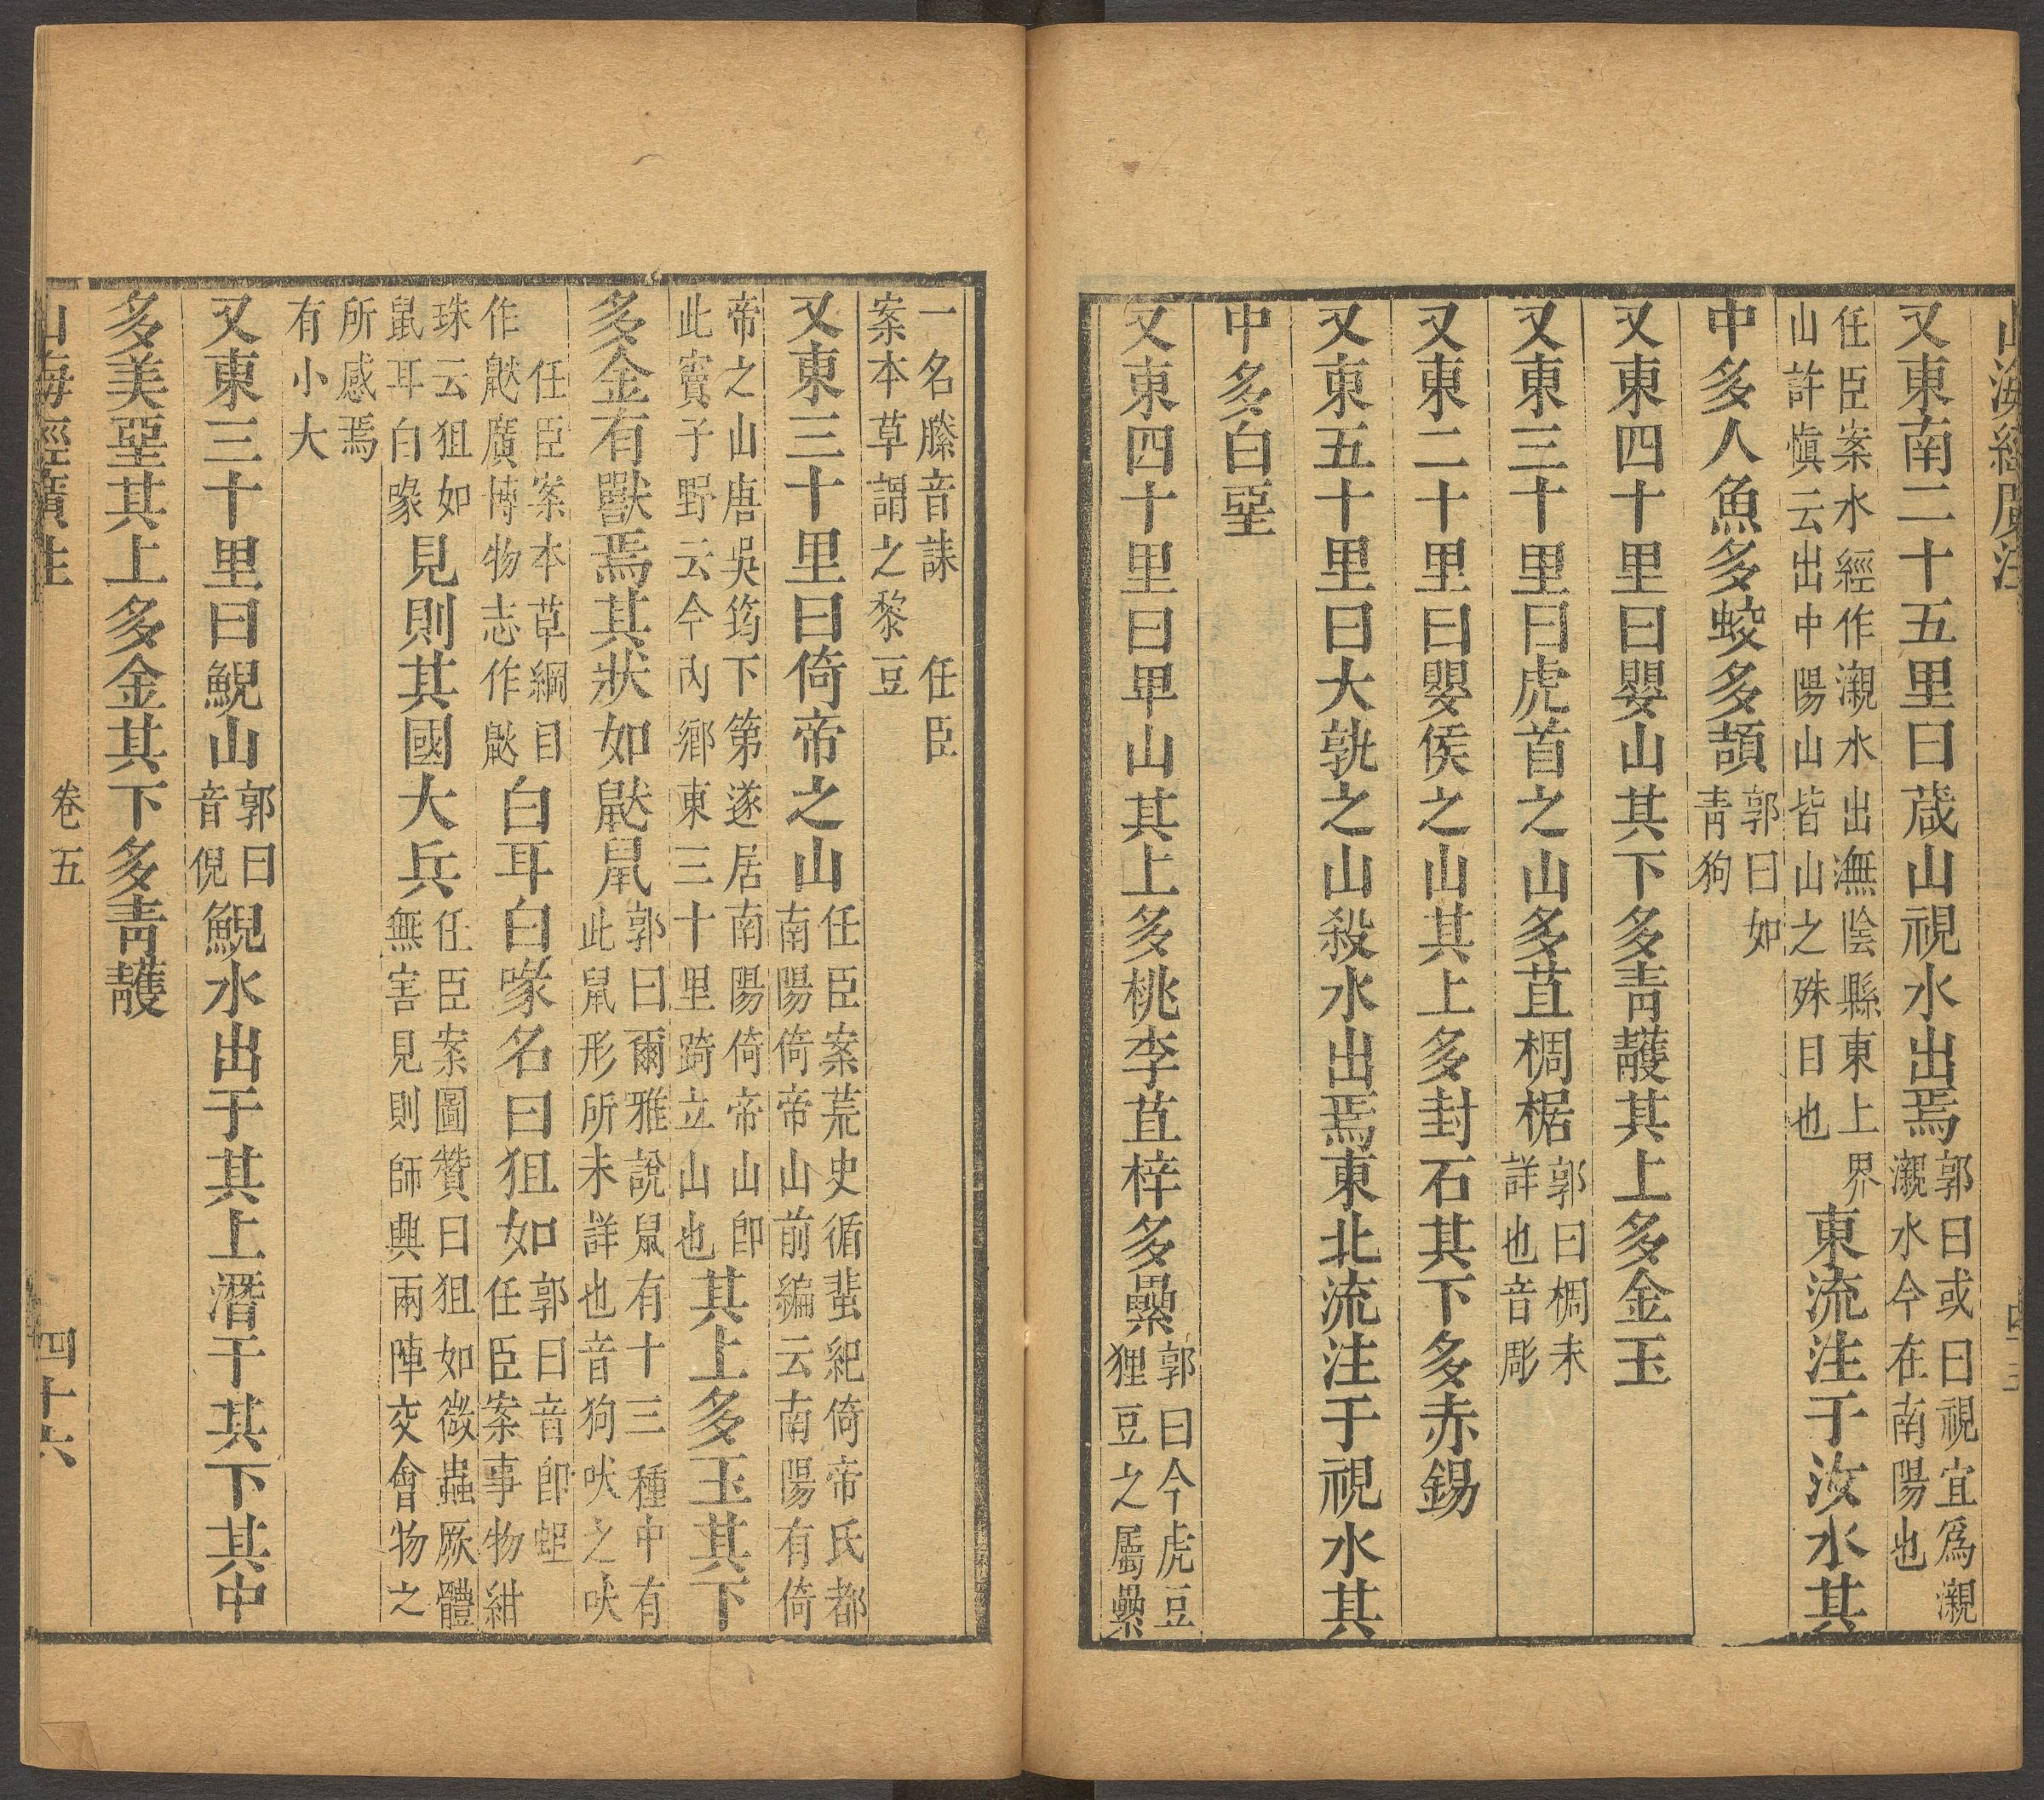 山海經廣注
又東南二十五里曰葴山視水出焉郭曰或曰視宜爲瀙瀙水今在南陽也
任臣案水經作瀙水出潕陰縣東上界山許愼云出中陽山皆山之殊目也東流注于汝水其
中多人魚多蛟多頡郭曰如靑狗
又東四十里曰嬰山其下多靑䨼其上多金玉
又東三十里曰虎首之山多苴椆椐郭曰椆未詳也音彫
又東二十里曰嬰侯之山其上多封石其下多赤錫
又東五十里曰大孰之山殺水出焉東北流注于視水其
中多白堊
又東四十里曰卑山其上多桃李苴梓多纍郭曰今虎豆狸豆之屬纍
一名縢音誄　任臣案本草謂之黎豆
又東三十里曰倚帝之山任臣案荒史循蜚紀倚帝氏都南陽倚帝山前編云南陽有倚
帝之山唐吳筠下第遂居南陽倚帝山卽此竇子野云今內鄉東三十里踦立山也其上多玉其下
多金有獸焉其狀如鼣鼠郭曰爾雅說鼠有十三種中有此鼠形所未詳也音狗吠之吠
任臣案本草綱目作鼣廣博物志作鼣白耳白喙名曰狙如郭曰音卽蛆任臣案事物紺
珠云狙如鼠耳白喙見則其國大兵任臣案圖贊曰狙如微蟲厥體無害見則師興兩陣交會物之
所感焉有小大
又東三十里曰鯢山郭曰音倪鯢水出于其上潛于其下其中
多美堊其上多金其下多靑䨼
山海經廣注　卷五　四十六